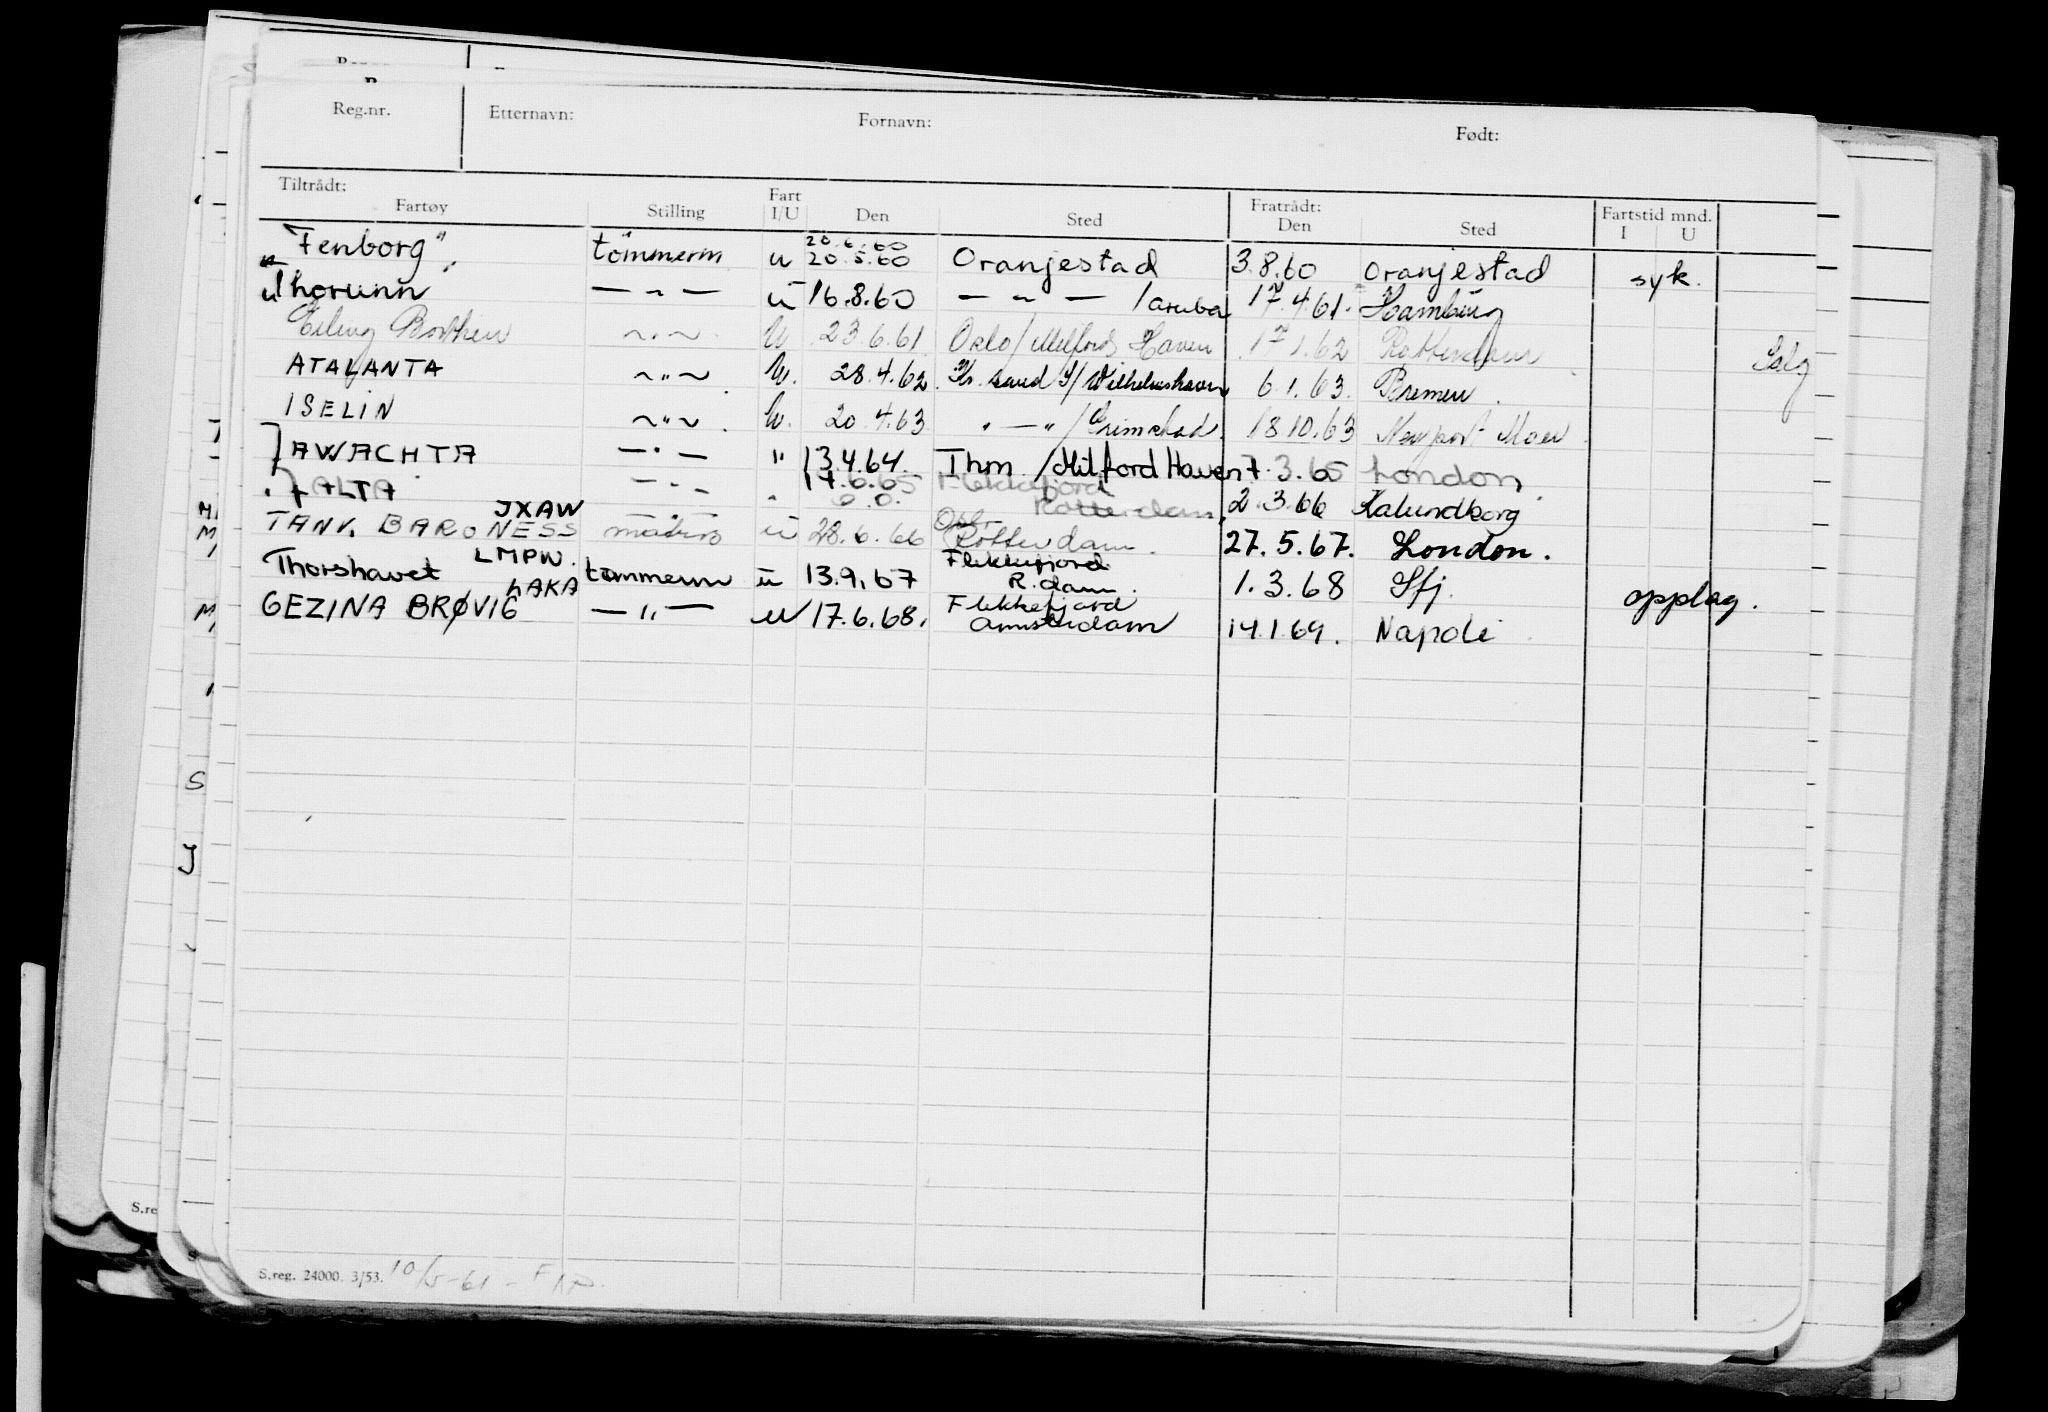 Reg.nr. Etternavn: Fornavn: Født:
Tiltrådt: Fratrådt: Fartstid mnd.
Fartøy Stilling Fart I/U Den Sted Den Sted I U
20.6.60
"Fenborg" tömmerm u 20.5.60 Oranjestad 3.8.60 Oranjestad syk.
Thorunn — " — u 16.8.60 — " — / aruba 17.4.61. Hamburg
Erling Borthen ~ " ~ u 23.6.61 Oslo/Milford Haven 17.1.62 Rotterdam Salg
ATALANTA ~ " ~ u. 28.4.62. Kr. sand S/Wilhelmshaven 6.1.63. Bremen.
ISELIN ~ " ~ u. 20.4.63 " — " /Grimstad. 18.10.63 Newport
AWACHTA — " — " 13.4.64. Thm /Milford Haven 7.3.65 London.
ALTA — " — 17.6.65 Flekkefjord
Rotterdam 2.3.66 Kalundborg
JXAW
TANK BARONESS matros u 28.6.66 Rotterdam. 27.5.67. London.
LMPW. Flekkefjord
Thorshavet tømmerm u 13.9.67 R.dam. 1.3.68 Sfj. opplag.
LAKA Flekkefjord
GEZINA BRØVIG — " — u 17.6.68. Amsterdam 14.1.69. Napoli
S.reg. 24000. 3/53. 10/5-61 -